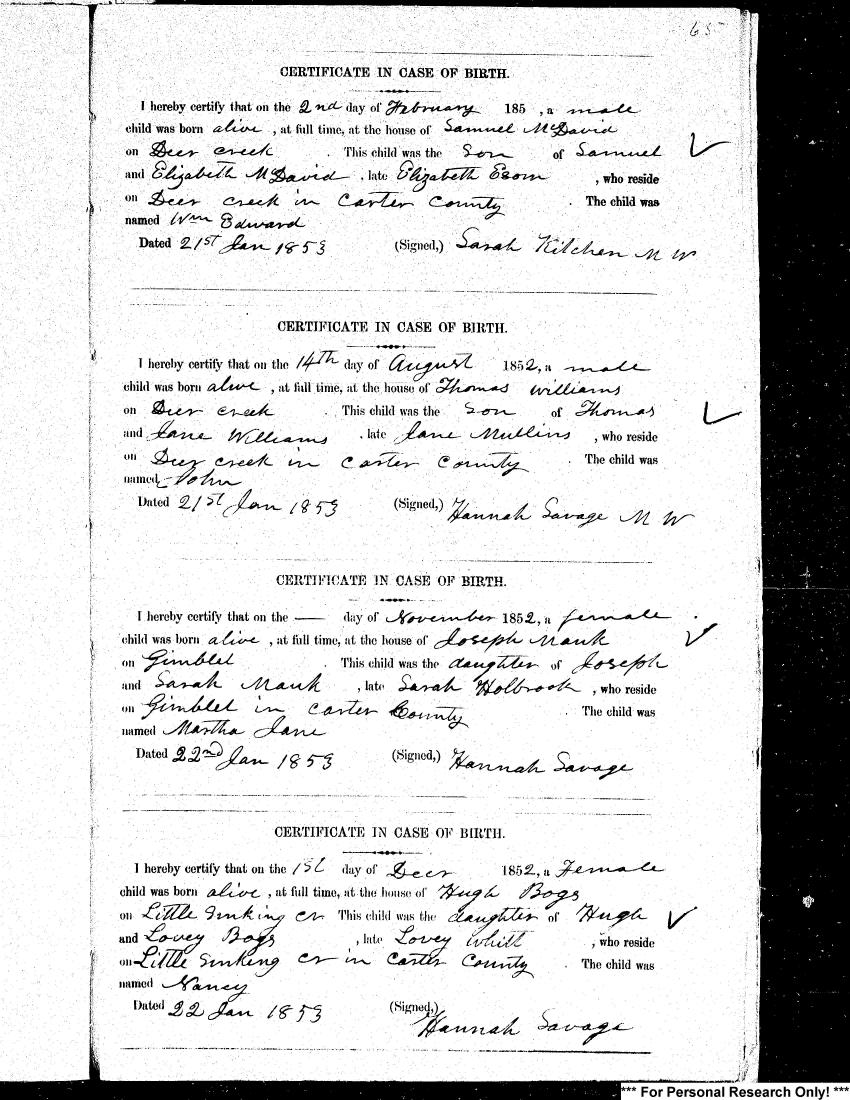 65
CERTIFICATE IN CASE OF BIRTH.
I hereby certify that on the 2nd day of February 185 , a male
child was born alive , at full time, at the house of Samuel McDavid
on Deer creek . This child was the Son of Samuel
and Elizabeth McDavid , late Elizabeth Esom , who reside
on Deer creek in Carter County . The child was
named Wm Edward
Dated 21st Jan 1853 (Signed,) Sarah Kitchen M W
CERTIFICATE IN CASE OF BIRTH.
I hereby certify that on the 14th day of August 1852, a male
child was born alive , at full time, at the house of Thomas Williams
on Deer creek . This child was the Son of Thomas
and Jane Williams , late Jane Mullins , who reside
on Deer creek in Carter County . The child was
named John
Dated 21st Jan 1853 (Signed,) Hannah Savage M W
CERTIFICATE IN CASE OF BIRTH.
I hereby certify that on the — day of November 1852, a female .
child was born alive , at full time, at the house of Joseph Mauk
on Gimblet . This child was the daughter of Joseph
and Sarah Mauk , late Sarah Holbrook , who reside
on Gimblet in Carter County . The child was
named Martha Jane
Dated 22nd Jan 1853 (Signed,) Hannah Savage
CERTIFICATE IN CASE OF BIRTH.
I hereby certify that on the 1st day of Decr 1852, a Female
child was born alive , at full time, at the house of Hugh Bogs
on Little Sinking Cr This child was the daughter of Hugh
and Lovey Bogs , late Lovey Whitt , who reside
on Little Sinking Cr in Carter County . The child was
named Nancy
Dated 22 Jan 1853 (Signed,)
Hannah Savage
*** For Personal Research Only! ***